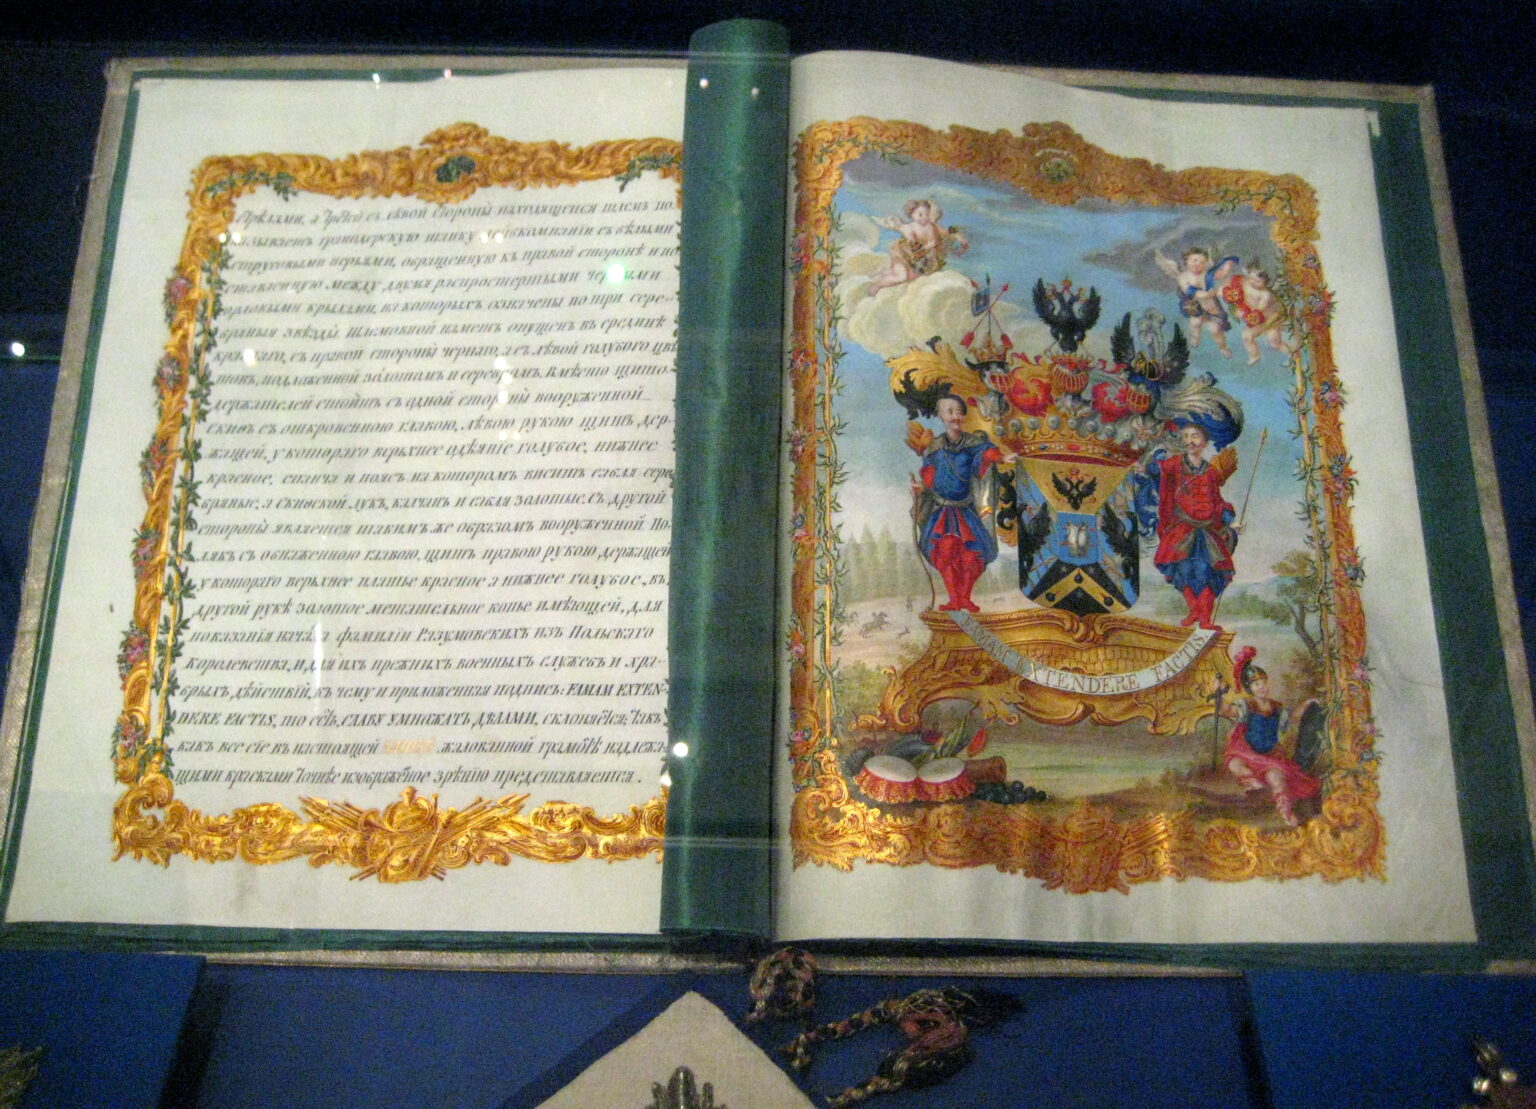 стрѣлами, а третей съ лѣвой стороны находящейся шлемъ по-
казываетъ гранодерскую шапку лейбкомпаніи съ бѣлыми
струсовыми перьями, обращенную къ правой сторонѣ и по-
ставленную между двумя распростертыми черными
орловыми крылами, на которыхъ означены по три сере-
краснаго, съ правой стороны чернаго, а съ лѣвой голубого цвѣ
товъ, подложенной золотомъ и серебромъ. Вмѣсто щито-
держателей стоитъ съ одной стороны вооруженной
Скиѳъ съ открвенною главою, лѣвою рукою щитъ дер-
жащей, у котораго верьхнее одѣяніе голубое, нижнее
красное, епанча и поясъ на которомъ виситъ сабля сере
бряные, а Скиѳской лукъ, калчанъ и сабля золотые. Съ другой
стороны является такимъ же образомъ вооруженной По-
лякъ съ обнаженною главою, щитъ правою рукою держащей
у котораго верьхнее платье красное а нижнее голубое, въ
другой рукѣ золотое метательное копье имѣющей, для
показанія начала фамиліи Разумовскихъ изъ Польскаго
Королевства, и для ихъ прежнихъ военныхъ службъ и хра-
брыхъ дѣйствій, къ чему и приложенная подпись: FAMAM EXTEN-
DERE FACTIS, то есть, СЛАВУ УМНОЖАТЬ ДѢЛАМИ, склоняется; такъ
какъ все сіе въ настоящей нашей жалованной грамотѣ надлежа-
щими красками точнѣе изображеное зрѣнію представляется.
FAMAM EXTENDERE FACTIS